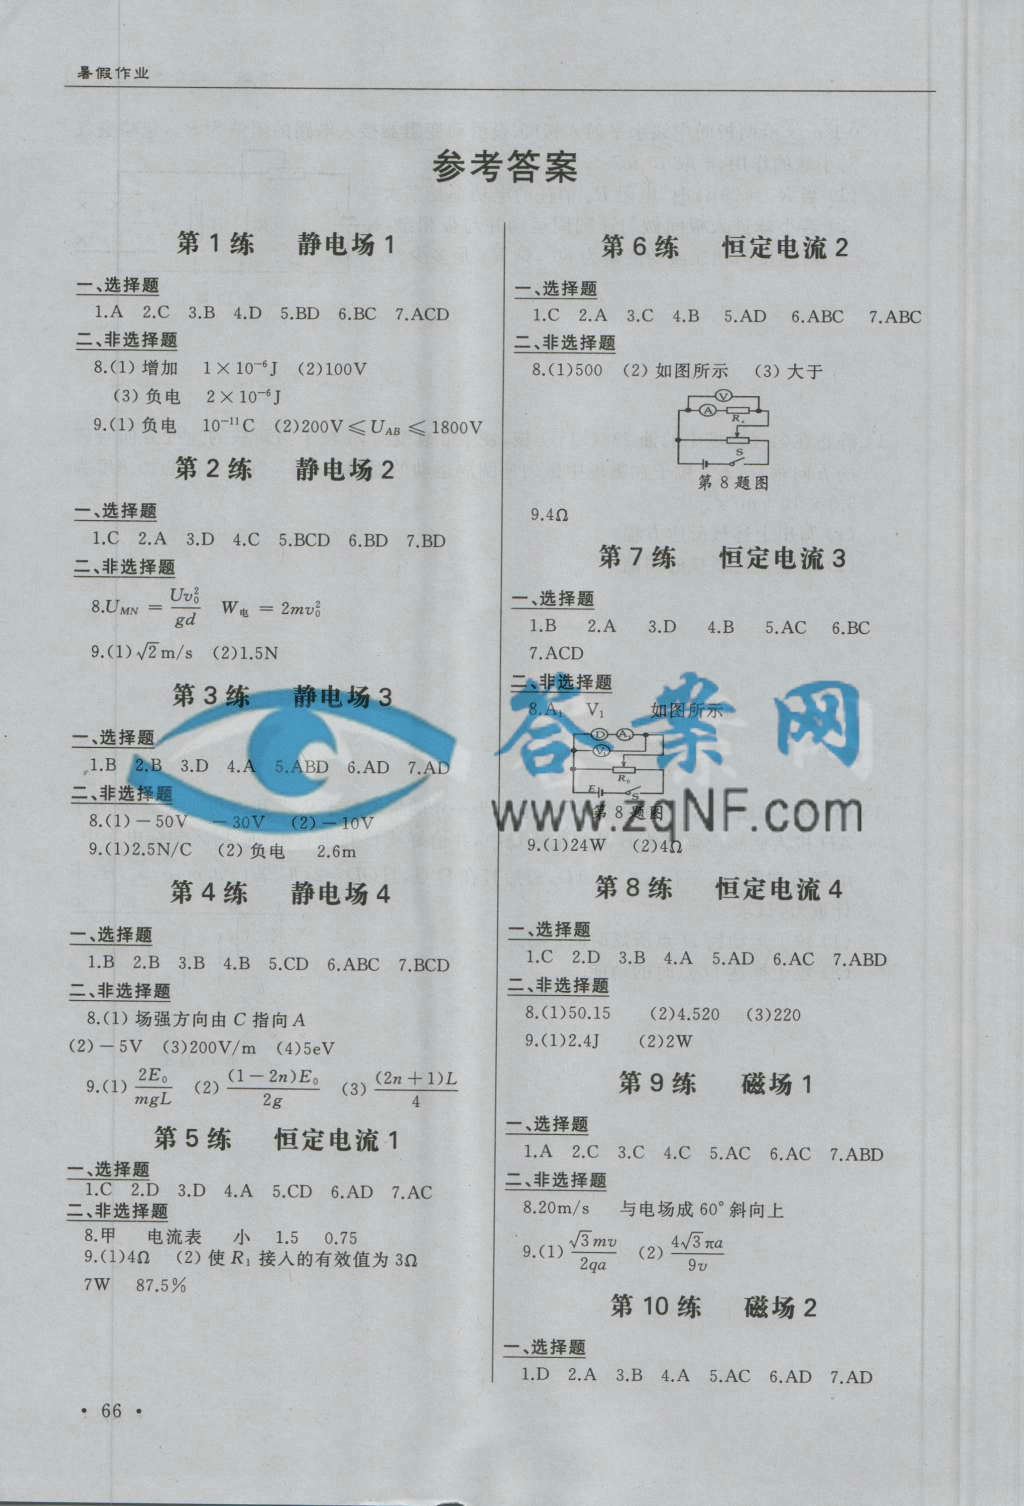 暑假作业
参考答案
第1练 静电场1
一、选择题
1.A 2.C 3.B 4.D 5.BD 6.BC 7.ACD
二、非选择题
8.(1)增加 1×10⁻⁶J (2)100V
(3)负电 2×10⁻⁶J
9.(1)负电 10⁻¹¹C (2)200V≤U_AB≤1800V
第2练 静电场2
一、选择题
1.C 2.A 3.D 4.C 5.BCD 6.BD 7.BD
二、非选择题
8.U_MN = Uv₀²/gd W电 = 2mv₀²
9.(1)√2m/s (2)1.5N
第3练 静电场3
一、选择题
1.B 2.B 3.D 4.A 5.ABD 6.AD 7.AD
二、非选择题
8.(1)－50V －30V (2)－10V
9.(1)2.5N/C (2)负电 2.6m
第4练 静电场4
一、选择题
1.B 2.B 3.B 4.B 5.CD 6.ABC 7.BCD
二、非选择题
8.(1)场强方向由C指向A
(2)－5V (3)200V/m (4)5eV
9.(1) 2E₀/mgL (2) (1－2n)E₀/2g (3) (2n＋1)L/4
第5练 恒定电流1
一、选择题
1.C 2.D 3.D 4.A 5.CD 6.AD 7.AC
二、非选择题
8.甲 电流表 小 1.5 0.75
9.(1)4Ω (2)使R₁接入的有效值为3Ω
7W 87.5%
· 66 ·
第6练 恒定电流2
一、选择题
1.C 2.A 3.C 4.B 5.AD 6.ABC 7.ABC
二、非选择题
8.(1)500 (2)如图所示 (3)大于
V
A Rₓ
S
第8题图
9.4Ω
第7练 恒定电流3
一、选择题
1.B 2.A 3.D 4.B 5.AC 6.BC
7.ACD
二、非选择题
8.A₁ V₁ 如图所示
D A₁
V₁
R₀
E S
第8题图
9.(1)24W (2)4Ω
第8练 恒定电流4
一、选择题
1.C 2.D 3.B 4.A 5.AD 6.AC 7.ABD
二、非选择题
8.(1)50.15 (2)4.520 (3)220
9.(1)2.4J (2)2W
第9练 磁场1
一、选择题
1.A 2.C 3.C 4.C 5.AC 6.AC 7.ABD
二、非选择题
8.20m/s 与电场成60°斜向上
9.(1) √3mv/2qa (2) 4√3πa/9v
第10练 磁场2
一、选择题
1.D 2.A 3.B 4.A 5.AC 6.AD 7.AD
答案网
www.zqNF.com